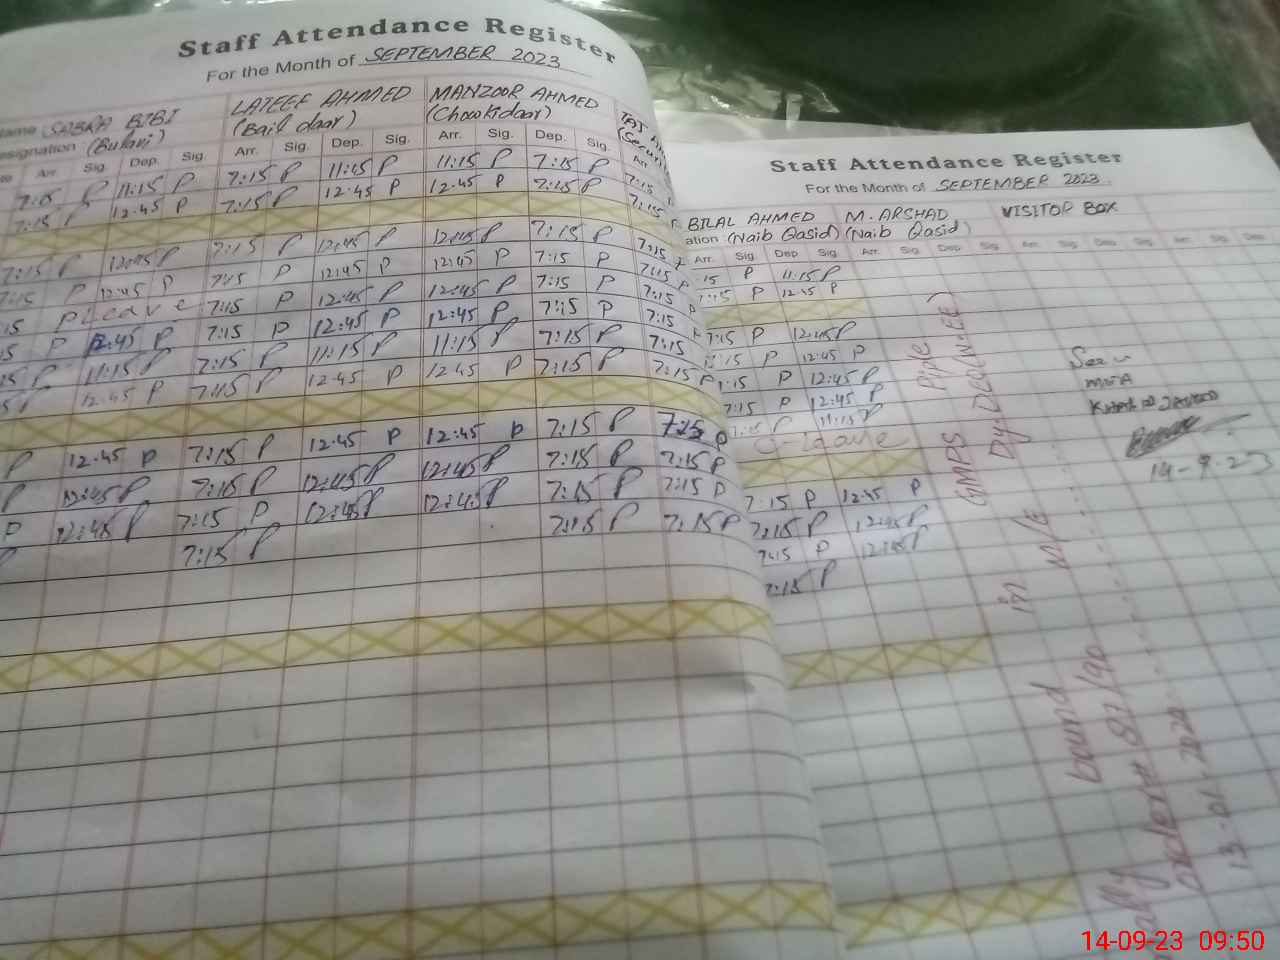 Staff Attendance Register
For the Month of SEPTEMBER 2023
SABRA BIBI LATEEF AHMED MANZOOR AHMED
(Bulavi) (Bail daar) (Chowkidaar)
Arr. Sig. Dep. Sig. Arr. Sig. Dep. Sig. Arr. Sig. Dep. Sig. Arr
7:15 P 11:15 P 7:15 P 11:15 P 11:15 P 7:15 P 7:15
7:15 P 12.45 P 7:15 P 12.45 P 12.45 P 7:15 P 7:15
7:15 P 12:45 P 7:15 P 12:45 P 12:45 P 7:15 P 7:15
7:15 P 12:45 P 7:15 P 12:45 P 12:45 P 7:15 P 7:15 P
15 P Leave 7:15 P 12:45 P 12:45 P 7:15 P 7:15 P
15 P 12:45 P 7:15 P 12:45 P 12:45 P 7:15 P 7:15
15 P 11:15 P 7:15 P 11:15 P 11:15 P 7:15 P 7:15
P 12.45 P 7:15 P 12.45 P 12.45 P 7:15 P 7:15 P
P 12.45 P 7:15 P 12.45 P 12:45 P 7:15 P 7:15 P
P 12:45 P 7:15 P 12:45 P 12:45 P 7:15 P 7:15 P
P 12:45 P 7:15 P 12:45 P 12:45 P 7:15 P 7:15 P
7:15 P 7:15 P 7:15 P
Staff Attendance Register
For the Month of SEPTEMBER 2023
BILAL AHMED M. ARSHAD VISITOR BOX
ation (Naib Qasid) (Naib Qasid)
Arr. Sig. Dep. Sig. Arr. Sig. Dep. Sig. Arr. Sig. Dep. Sig. Arr. Sig. Dep.
:15 P 11:15 P
7:15 P 12:45 P
7:15 P 12:45 P
7:15 P 12:45 P
7:15 P 12:45 P
7:15 P 12:45 P
7:15 P 11:15 P
7:15 P 12:45 P
7:15 P 12:45 P
7:15 P 12:45 P
7:15 P
MEA
14-9-23
GMPS Piple
Dy DEO (W.EE)
in M/E
bound
87/90
13-01-2020
14-09-23 09:50